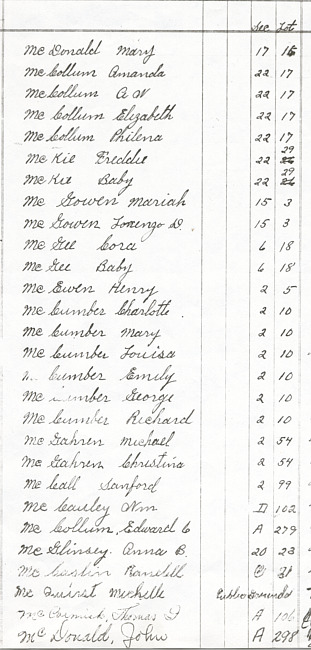 Sec Lot
Mc Donald Mary 17 16
Mc Collum Amanda 22 17
Mc Collum A W 22 17
Mc Collum Elizabeth 22 17
Mc Collum Philena 22 17
Mc Kie Freddie 22 29
Mc Kie Baby 22 29
Mc Gowen Mariah 15 3
Mc Gowen Lorengo D. 15 3
Mc Gee Cora 6 18
Mc Gee Baby 6 18
Mc Ewen Henry 2 5
Mc Cumber Charlotte 2 10
Mc Cumber Mary 2 10
Mc Cumber Louisa 2 10
Cumber Emily 2 10
Mc Cumber George 2 10
Mc Cumber Richard 2 10
Mc Gahren Michael 2 54
Mc Gahren Christina 2 54
Mc Call Sanford 2 99
Mc Cauley Wm D 102
Mc Collum, Edward C A 279
Mc Glinsey Anna B. 20 23
Mc 31
Mc Michelle Public Grounds
Mc Cormick, Thomas A 106
Mc Donald, John A 298